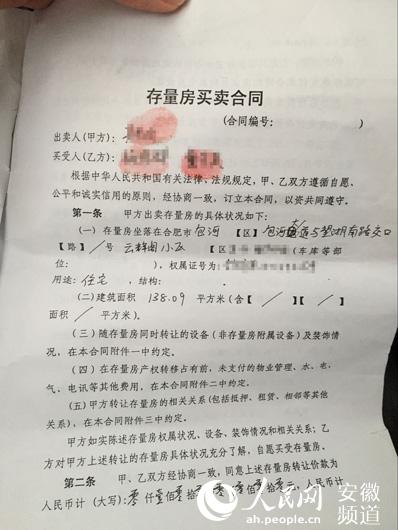 存量房买卖合同
(合同编号: )
出卖人(甲方):
买受人(乙方):
根据中华人民共和国有关法律、法规规定,甲、乙双方遵循自愿、
公平和诚实信用的原则,经协商一致,订立本合同,以资共同遵守。
第一条 甲方出卖存量房的具体状况如下:
(一)存量房坐落在合肥市 包河 【区】 包河大道与望湖南路交口
【路】 / 号 小区 【区 (车库等部
位: ),权属证号为:
用途: 住宅 ,结构:
(二)建筑面积 138.09 平方米(含【 / 】【 / 】
面积 / 平方米)。
(三)随存量房同时转让的设备(非存量房附属设备)及装饰情
况,在本合同附件一中约定。
(四)在存量房产权转移占有前,未支付的物业管理、水、电、
气、电讯等其他费用,在本合同附件二中约定。
(五)甲方转让存量房的相关关系(包括抵押、租赁、相邻等其他
关系),在本合同附件三中约定。
甲方如实陈述存量房权属状况、设备、装饰情况和相关关系;乙
方对甲方上述转让的存量房具体状况充分了解,自愿买受存量房。
第二条 甲、乙双方经协商一致,同意上述存量房转让价款为
人民币计(大写): 零 仟 壹 佰 零 拾 佰 拾 元,人民币计
人民网 安徽
频道
ah.people.com.cn